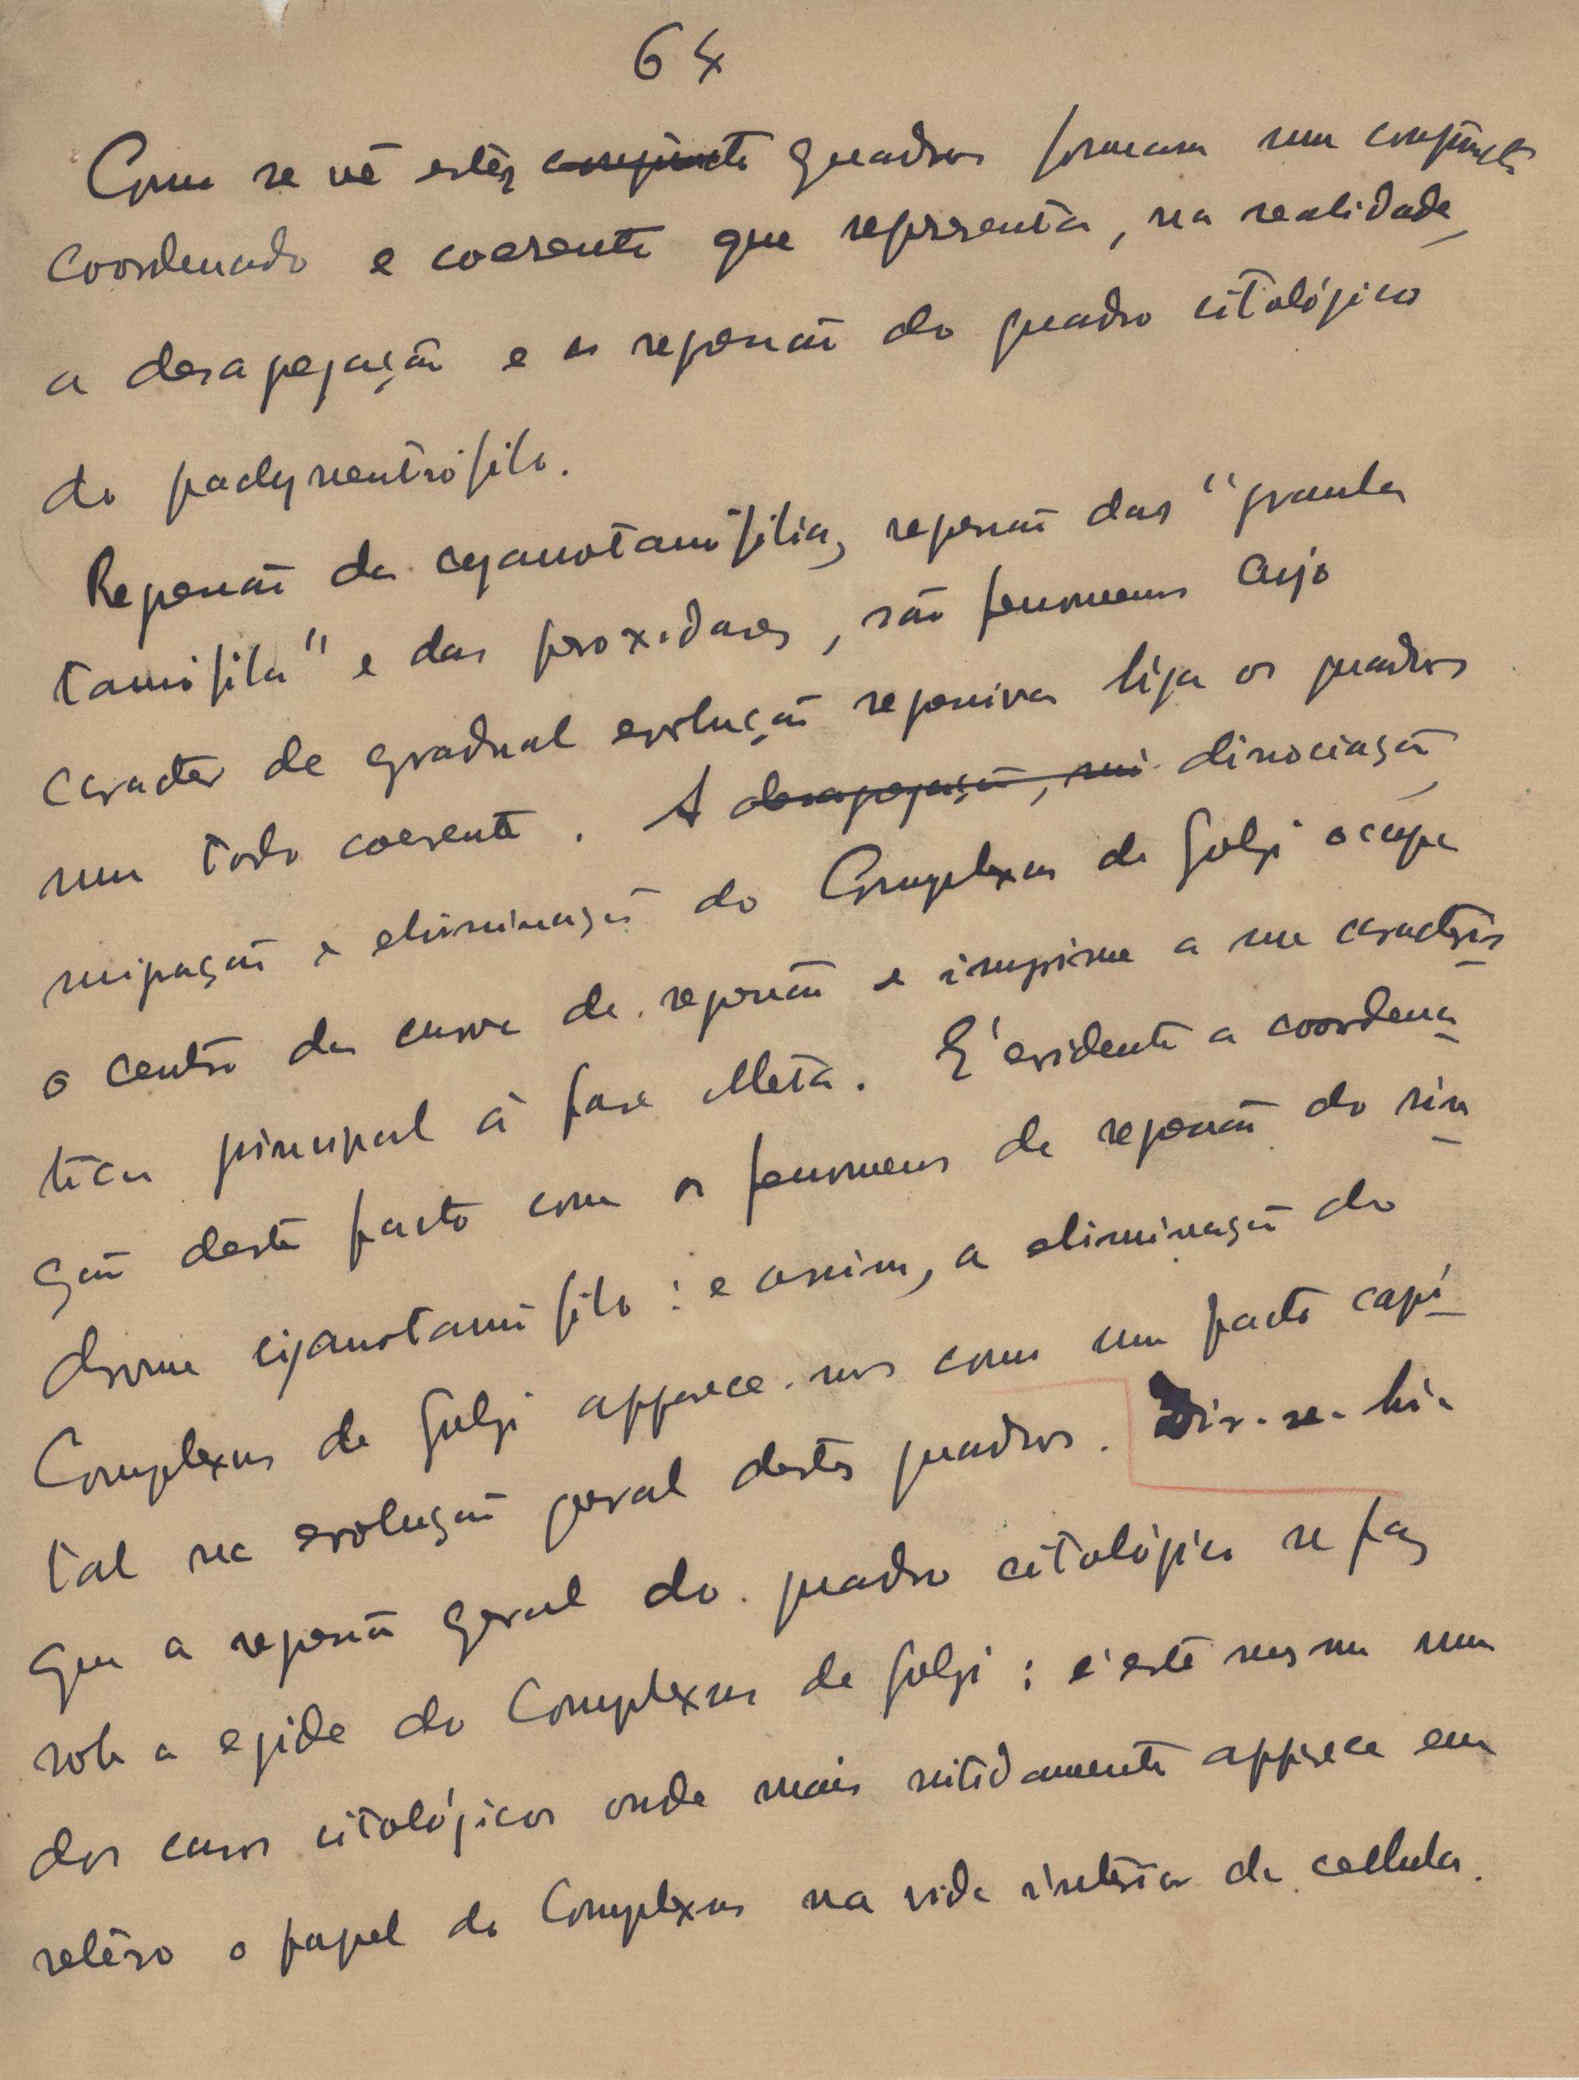 64
Como se vê estes conjuncto quadros formam um conjuncto
coordenado e coerente que representa, na realidade,
a desapegação e a regressão do quadro citológico
do pachyneutrófilo.
Regressão da cyanotanófilia, regressão das "granula
tanófila" e das peroxidases, são fenomenos cujo
caracter de gradual evolução regressiva liga os quadros
num todo coerente. A desapegação, mi dissociação,
migração e eliminação do Complexus de Golgi ocupa
o centro da curva de regressão e imprime a sua caracterís
tica principal á fase Meta. É evidente a coordena
ção deste facto com os fenomenos de regressão do sin
drome cyanotanófilo: e assim, a eliminação do
Complexus de Golgi apparece-nos como um facto capi
tal na evolução geral destes quadros. Dir-se-hia
que a regressão geral do quadro citológico se faz
sob a egide do Complexus de Golgi: é este mesmo um
dos casos citológicos onde mais nitidamente apparece em
relêvo o papel do Complexus na vida interior da cellula.